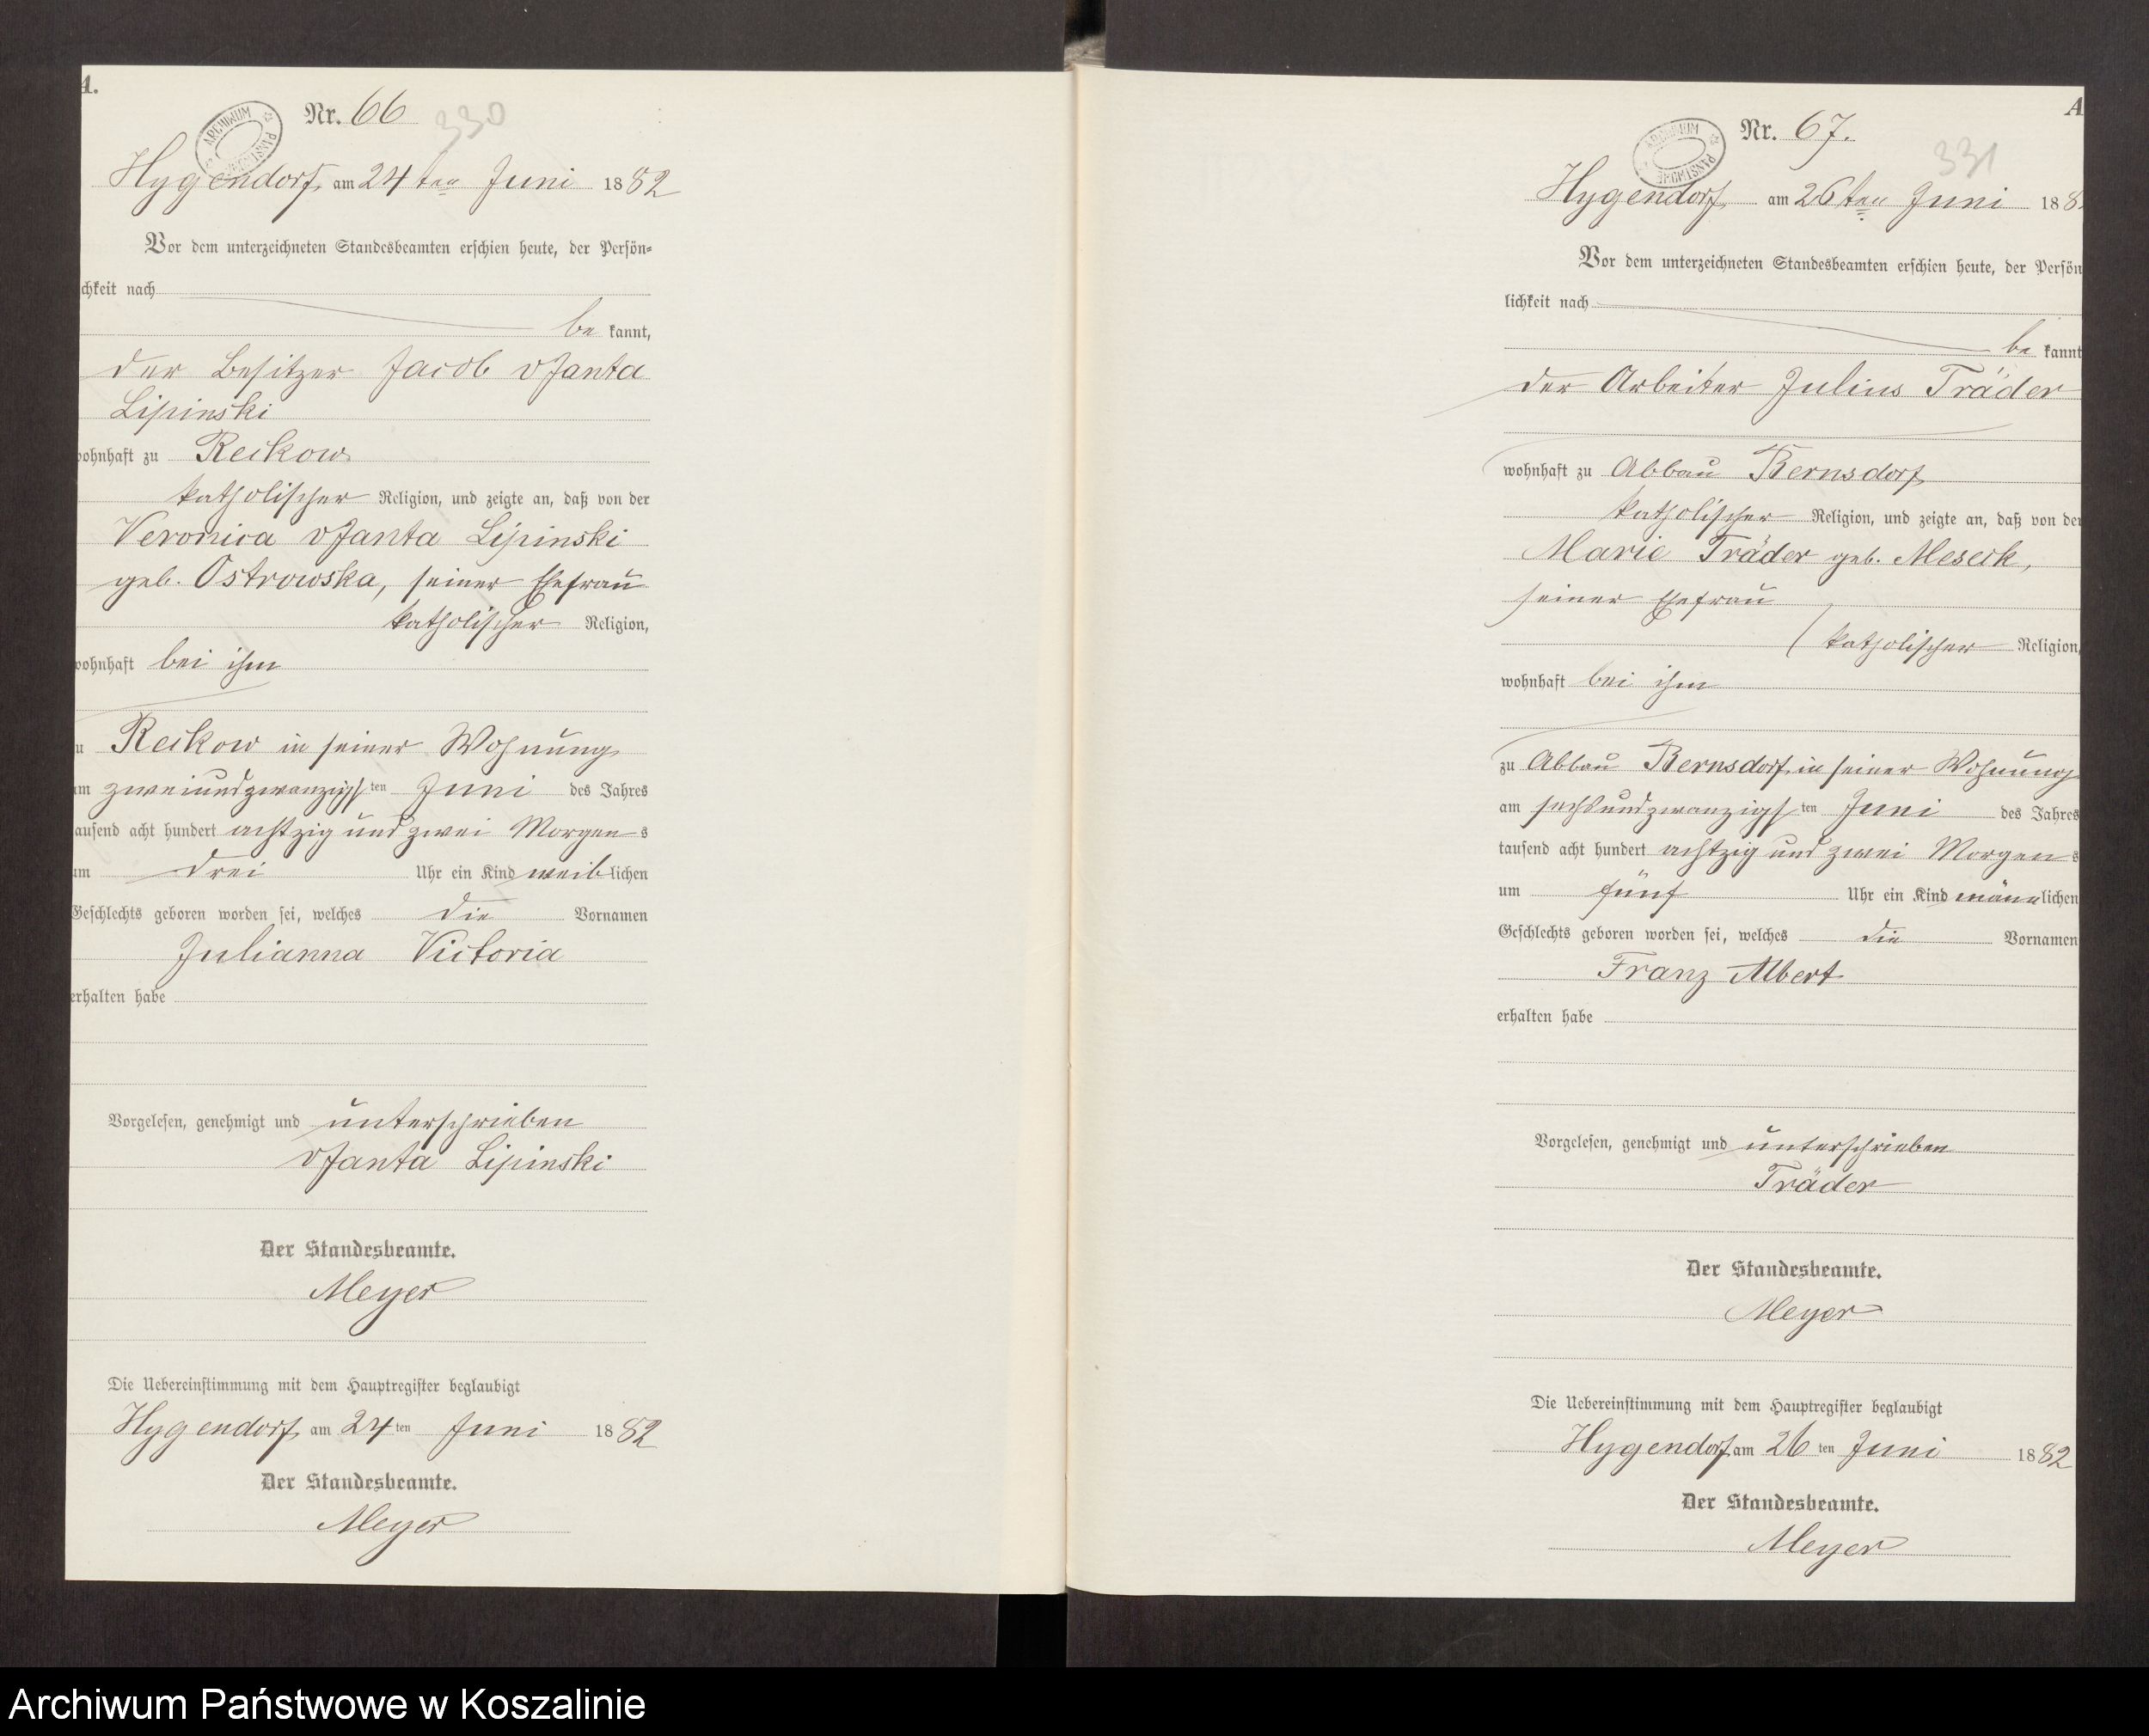 A.
Nr. 66
330
ARCHIWUM PAŃSTWOWE
Hygendorf, am 24ten Juni 1882
Vor dem unterzeichneten Standesbeamten erschien heute, der Persön-
chkeit nach
be kannt,
der Besitzer Jacob vJanta
Lipinski
wohnhaft zu Reckow
katholischer Religion, und zeigte an, daß von der
Veronica vJanta Lipinski
geb. Ostrowska, seiner Ehefrau
katholischer Religion,
wohnhaft bei ihm
zu Reckow in seiner Wohnung
am zweiundzwanzigsten Juni des Jahres
tausend acht hundert achtzig und zwei Morgens
um drei Uhr ein Kind weiblichen
Geschlechts geboren worden sei, welches die Vornamen
Julianna Victoria
erhalten habe
Vorgelesen, genehmigt und unterschrieben
vJanta Lipinski
Der Standesbeamte.
Meyer
Die Uebereinstimmung mit dem Hauptregister beglaubigt
Hygendorf am 24ten Juni 1882
Der Standesbeamte.
Meyer
A
Nr. 67.
331
ARCHIWUM PAŃSTWOWE
Hygendorf am 26ten Juni 188
Vor dem unterzeichneten Standesbeamten erschien heute, der Persön
lichkeit nach
be kannt
der Arbeiter Julius Träder
wohnhaft zu Abbau Bernsdorf
katholischer Religion, und zeigte an, daß von der
Marie Träder geb. Meseck,
seiner Ehefrau
katholischer Religion,
wohnhaft bei ihm
zu Abbau Bernsdorf in seiner Wohnung
am sechsundzwanzigsten Juni des Jahres
tausend acht hundert achtzig und zwei Morgens
um fünf Uhr ein Kind männlichen
Geschlechts geboren worden sei, welches die Vornamen
Franz Albert
erhalten habe
Vorgelesen, genehmigt und unterschrieben
Träder
Der Standesbeamte.
Meyer
Die Uebereinstimmung mit dem Hauptregister beglaubigt
Hygendorf am 26ten Juni 1882
Der Standesbeamte.
Meyer
Archiwum Państwowe w Koszalinie